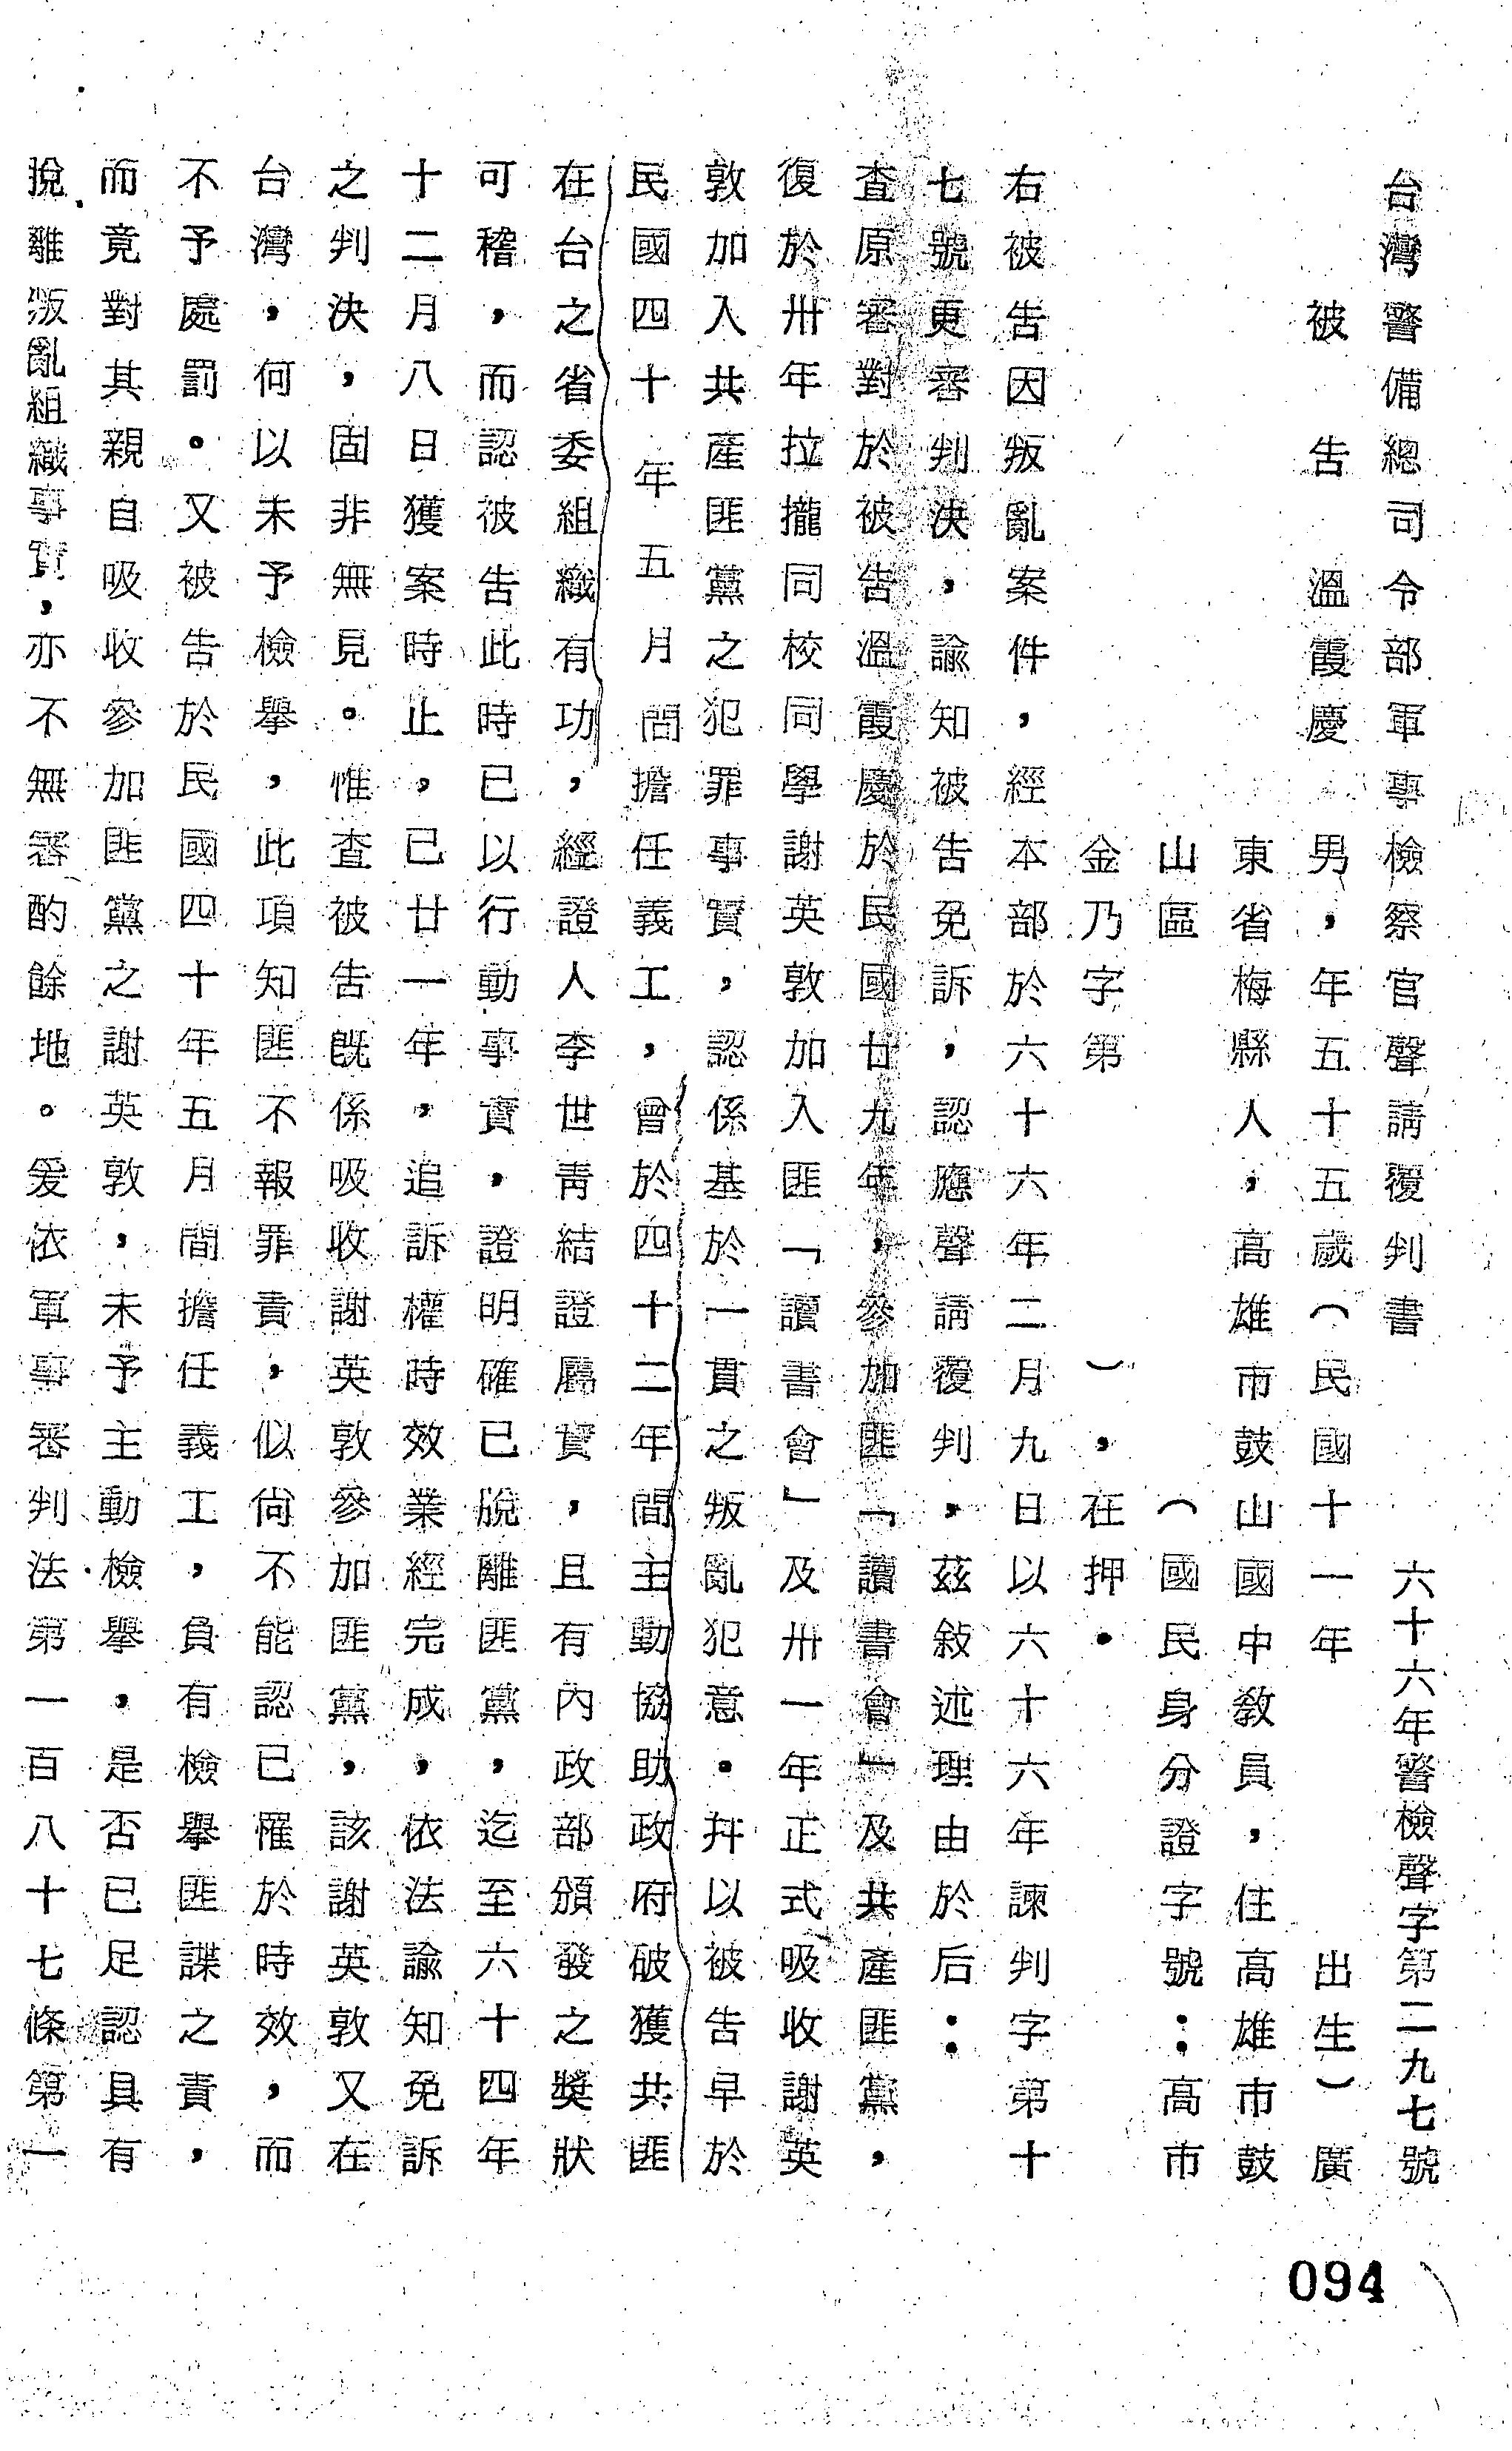 台灣警備總司令部軍事檢察官聲請覆判書
六十六年警檢聲字第二九七號
被告 溫霞慶 男，年五十五歲（民國十一年 出生）廣
東省梅縣人，高雄市鼓山國中教員，住高雄市鼓
山區 （國民身分證字號：高市
金乃字第 ），在押。
右被告因叛亂案件，經本部於六十六年二月九日以六十六年諫判字第十
七號更審判決，諭知被告免訴，認應聲請覆判，茲敍述理由於后：
查原審對於被告溫霞慶於民國廿九年，參加匪「讀書會」及共產匪黨，
復於卅年拉攏同校同學謝英敦加入匪「讀書會」及卅一年正式吸收謝英
敦加入共產匪黨之犯罪事實，認係基於一貫之叛亂犯意。幷以被告早於
民國四十年五月間擔任義工，曾於四十二年間主動協助政府破獲共匪
在台之省委組織有功，經證人李世靑結證屬實，且有內政部頒發之獎狀
可稽，而認被告此時已以行動事實，證明確已脫離匪黨，迄至六十四年
十二月八日獲案時止，已廿一年，追訴權時效業經完成，依法諭知免訴
之判決，固非無見。惟查被告旣係吸收謝英敦參加匪黨，該謝英敦又在
台灣，何以未予檢舉，此項知匪不報罪責，似尙不能認已罹於時效，而
不予處罰。又被告於民國四十年五月間擔任義工，負有檢舉匪諜之責，
而竟對其親自吸收參加匪黨之謝英敦，未予主動檢舉，是否已足認具有
脫離叛亂組織事實，亦不無審酌餘地。爰依軍事審判法第一百八十七條第一
094